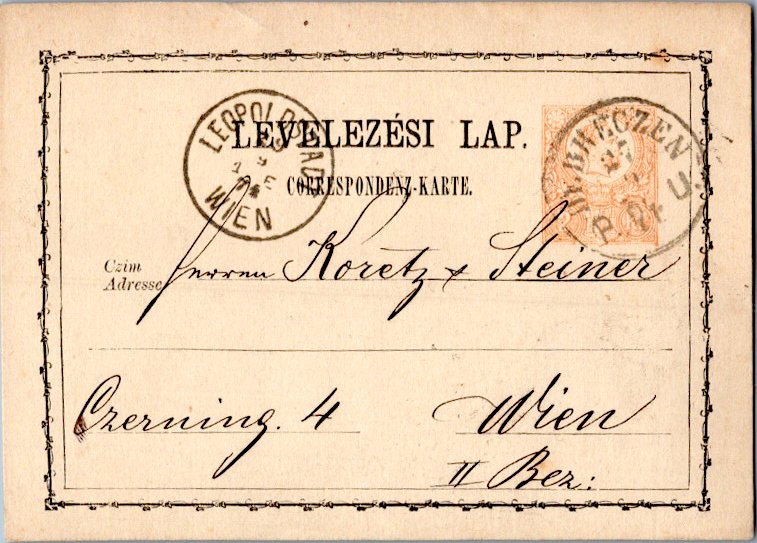 LEOPOLDSTADT
WIEN
LEVELEZÉSI LAP.
CORRESPONDENZ-KARTE.
DEBRECZEN
P. Pr U.
Czim
Adresse
Herren Koretz & Steiner
Czerning. 4 Wien
II Bez: